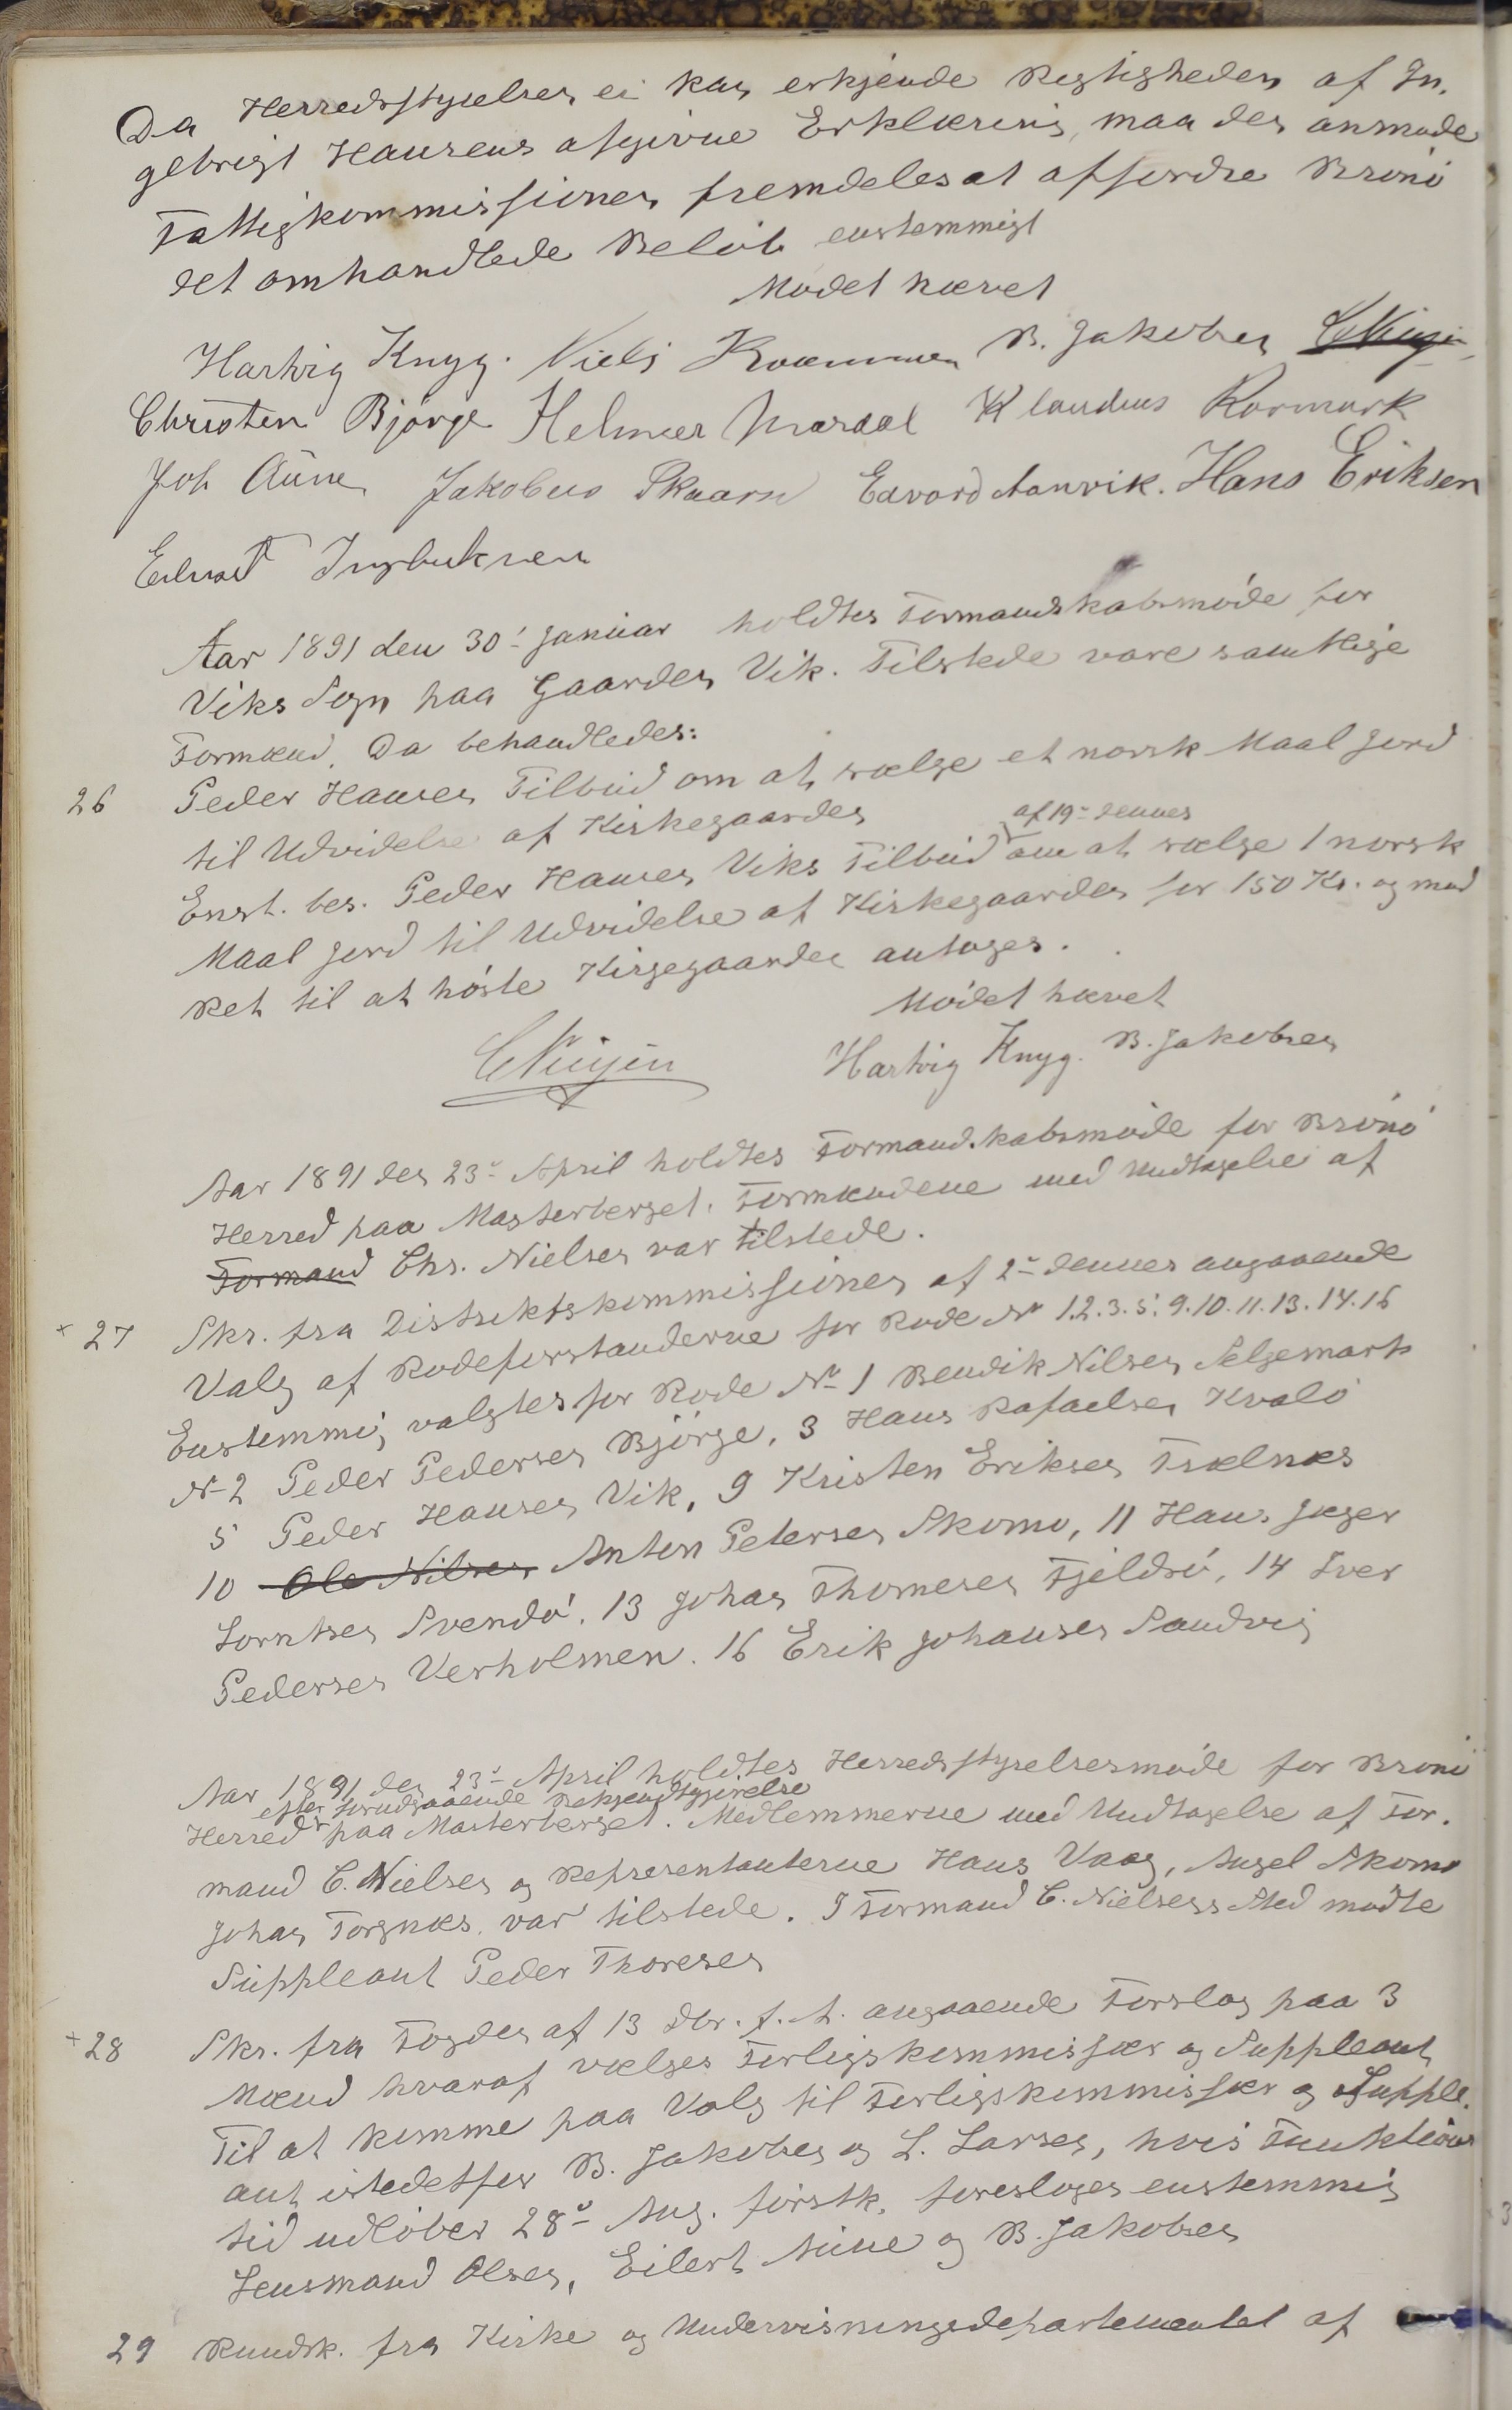 Da Herredsstyrelsen ei kan erkjende Rigtigheden af In-
gebrigt Hansens afgivne Erklæring, maa den anmode
Fattigkommissionen fremdeles at affordre Brönö
det omhandlede Beløb enstemmigt
Mødet hævet
Hartvig Knyg. Niels B. Jakobsen
Christen Bjørge Helmer Mardal Klaudius Rormark
Joh Aüne Jakobus Skaarn Edvard Aanvik. Hans Eriksen
Edvart Ingbriktsen
Aar 1891 den 30' Januar holdtes Formandskabsmøde for
Viks Sogn paa Gaarden Vik. Tilstede vare samtlige
Formænd. Da behandledes:
26 Peder Hansen Tilbud om at sælge et norsk Maal Jord
til Udvidelse af Kirkegaarden
af 19- dennes
Enst. bes. Peder Hansen Viks Tilbud om at sælge 1 norsk
Maal Jord til Udvidelse af Kirkegaarden for 150 Kr. og mod
Ret til at høste Kirgegaarden antages.
Mödet hævet
Hartvig Knyg. B. Jakobsen
Aar 1891 den 23- April holdtes Formandskabsmöde for Brönö
Herred paa Mosterberget. Formændene med Undtagelse af
Formand Chr. Nielsen var tilstede.
+ 27 Skr. fra Distriktskommissionen af 2- dennes angaaende
Valg af Rodeforstanderne for Rode No 1.2.3.5.9.10.11.13.14.16
Enstemmig valgtes for Rode No 1 Bendik Nilsen Selgemark
No 2 Peder Pedersen Bjørge, 3 Hans Rafaelsen Kvalö
5 Peder Hansen Vik, 9 Kristen Eriksen Trælnæs
10 Ole Nilsen Anton Petersen Skomo, 11 Hans Jæger
Lorntsen Svendö. 13 Johan Thomesen Fjeldsö, 14 Iver
Pedersen Verholmen. 16 Erik Johansen Sandvig
Aar 1891 den 23- April holdtes Herredsstyrelsesmøde for Brönö
efter forudgaaende Bekjendtgjørelse
Herred paa Mosterberget. Medlemmerne med Undtagelse af For-
mand C. Nielsen og Repræsentanterne Hans Vaag, Angel Skomo
Johan Torgnæs, var tilstede. I Formand C. Nielsens Sted mødte
Süppleant Peder Thoresen
+ 28 Skr. fra Fogden af 13 dbr. f. A. angaaende Forslag paa 3
Mænd hvoraf vælges Forligskommissær og Suppleant
Til at komme paa Valg til Forligskommissær og Supple-
ant istedetfor B. Jakobsen og L. Larsen, hvis Funktions
tid udløber 28- Aug. førstk. foresloges enstemmig
Lensmand Olsen, Eilert Aüne og B. Jakobsen
29 Rundsk. fra Kirke og Undervisningsdepartementet af